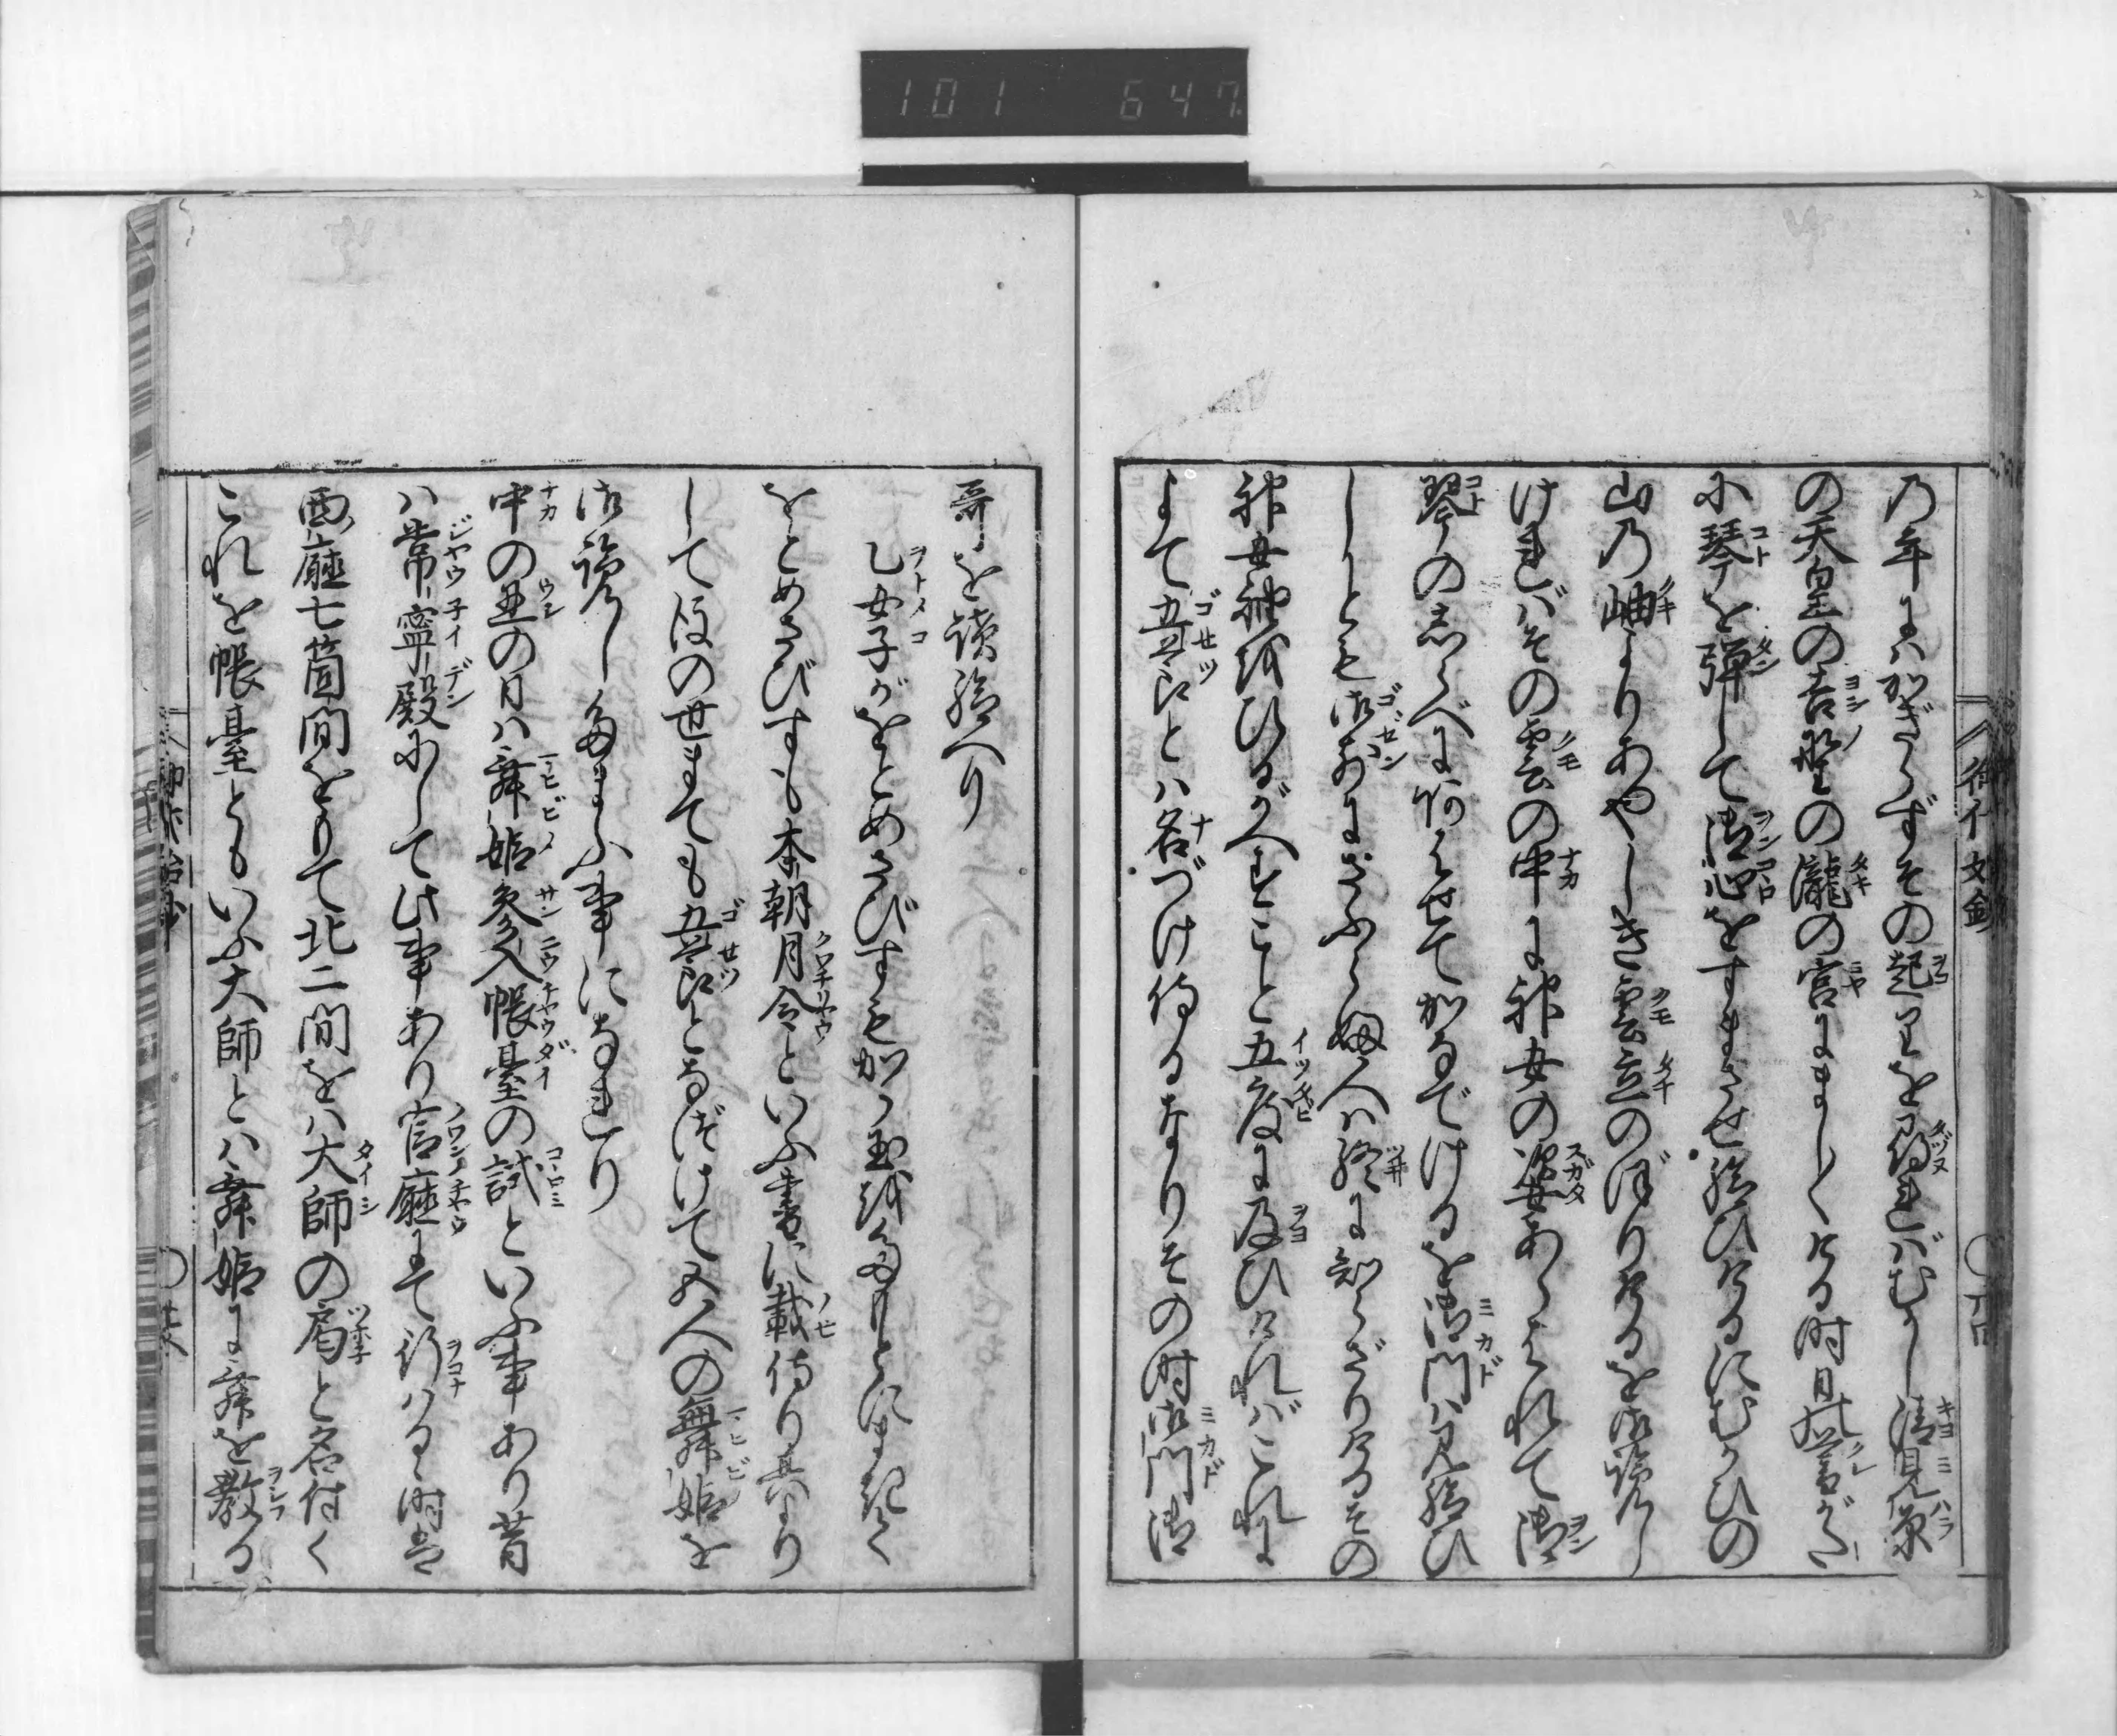 101 647
乃年にハかぎらずその起りを尋ればむかし清見原
の天皇の吉野の瀧の宮にまし〱ける時日暮がた
に琴を弾して御心をすまさせ給ひけるにむかひの
山乃岫よりあやしき雲立のぼりけるを御覧し
ければその雲の中に神女の姿あらはれて御
琴の志らべに合せてかなでけるを御門ハ見給ひ
しりとも御前にさふらふ人ハ終に知らざりけるその
神女袖をひるがへすこと五度に及ひければこれに
よて五節とハ名づけ侍るなりその時御門御
哥を読給へり
乙女子がをとめさびすもから玉をたもとにまきて
をとめさびすも本朝月令といふ書に載侍り其より
して後の世まても五節となづけて五人の舞姫を
御覧したまふ事になれり
中の丑の日ハ舞姫参入帳臺の試といふ事あり昔
ハ常寧殿にして此事あり官廳にて行ハるゝ時は
西廳七箇間をもて北二間をハ大師の局と名付く
これを帳臺ともいふ大師とハ舞姫に舞を教る